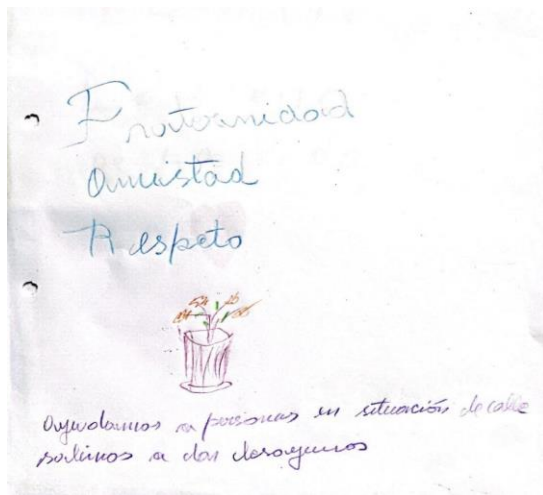 Fraternidad
amistad
Respeto
Ayudamos a personas en situación de calle
salimos a dar desayunos